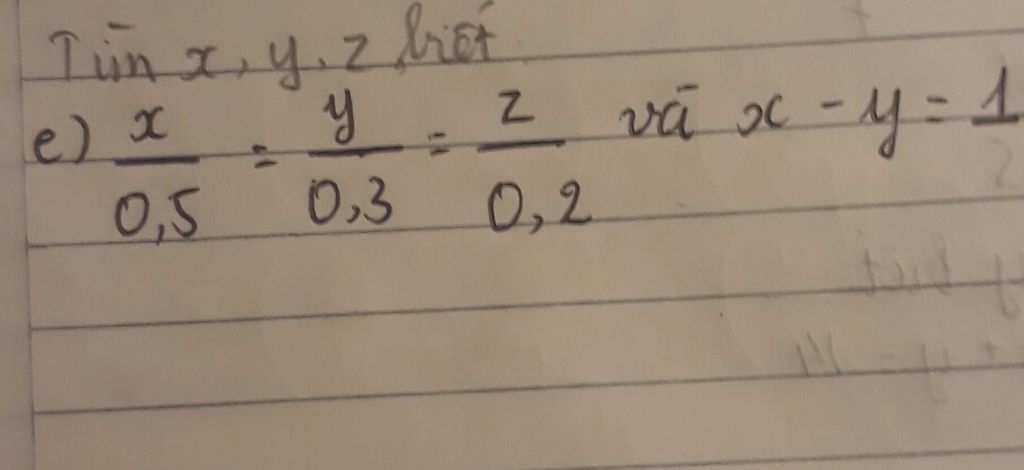 Tìm x, y, z biết
e) x/0,5 = y/0,3 = z/0,2 và x - y = 1